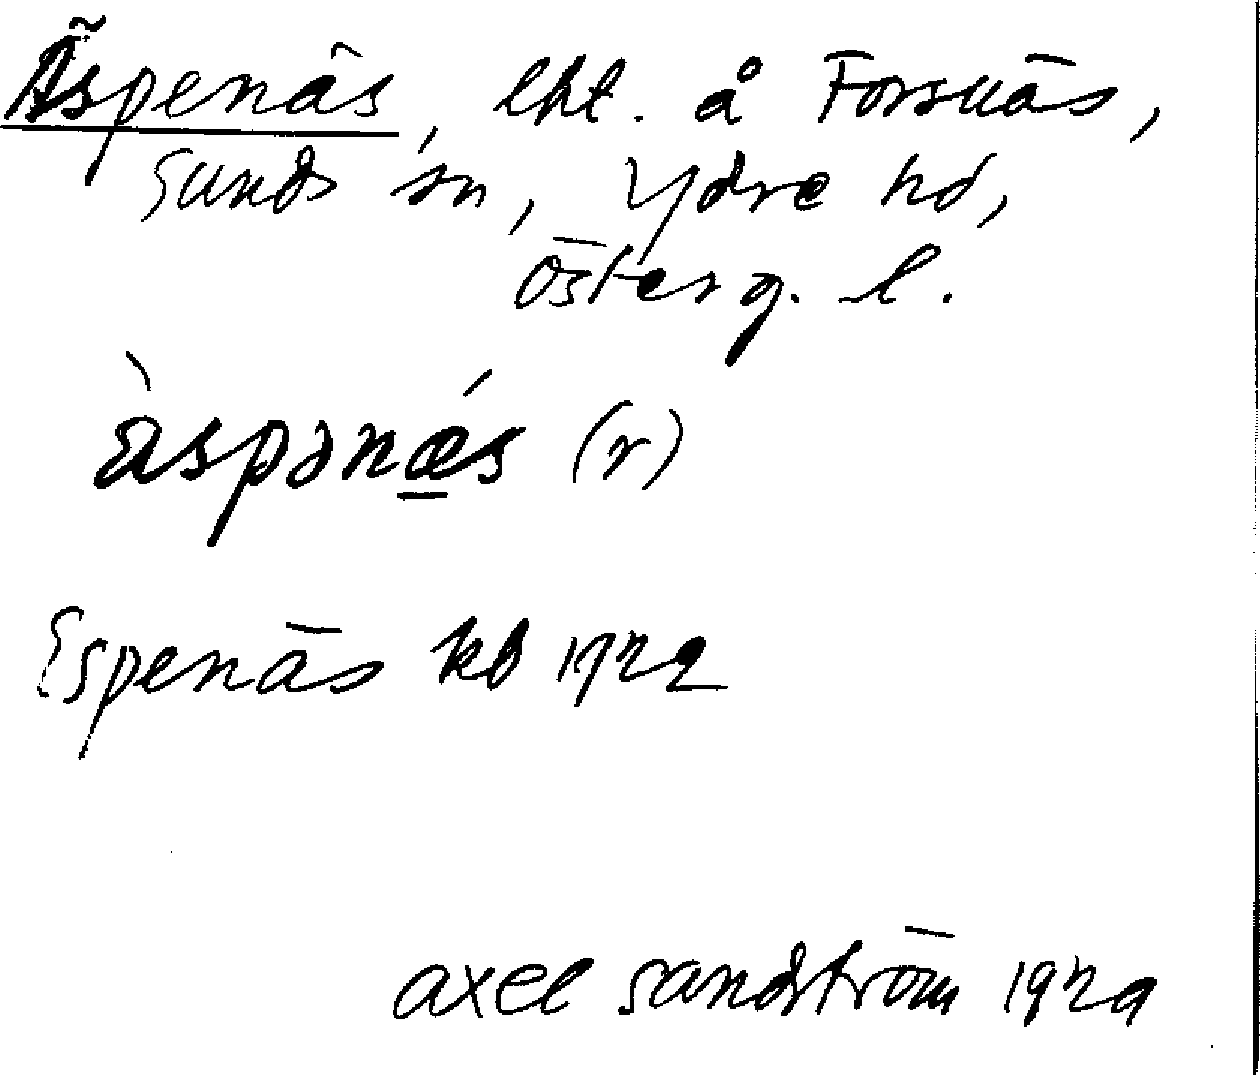 Äspenäs, lht. å Forsnäs,
Sunds sn, Ydre hd,
Österg. l.
àspənǽs (r)
Espenäs kb 1722
Axel Sandström 1929